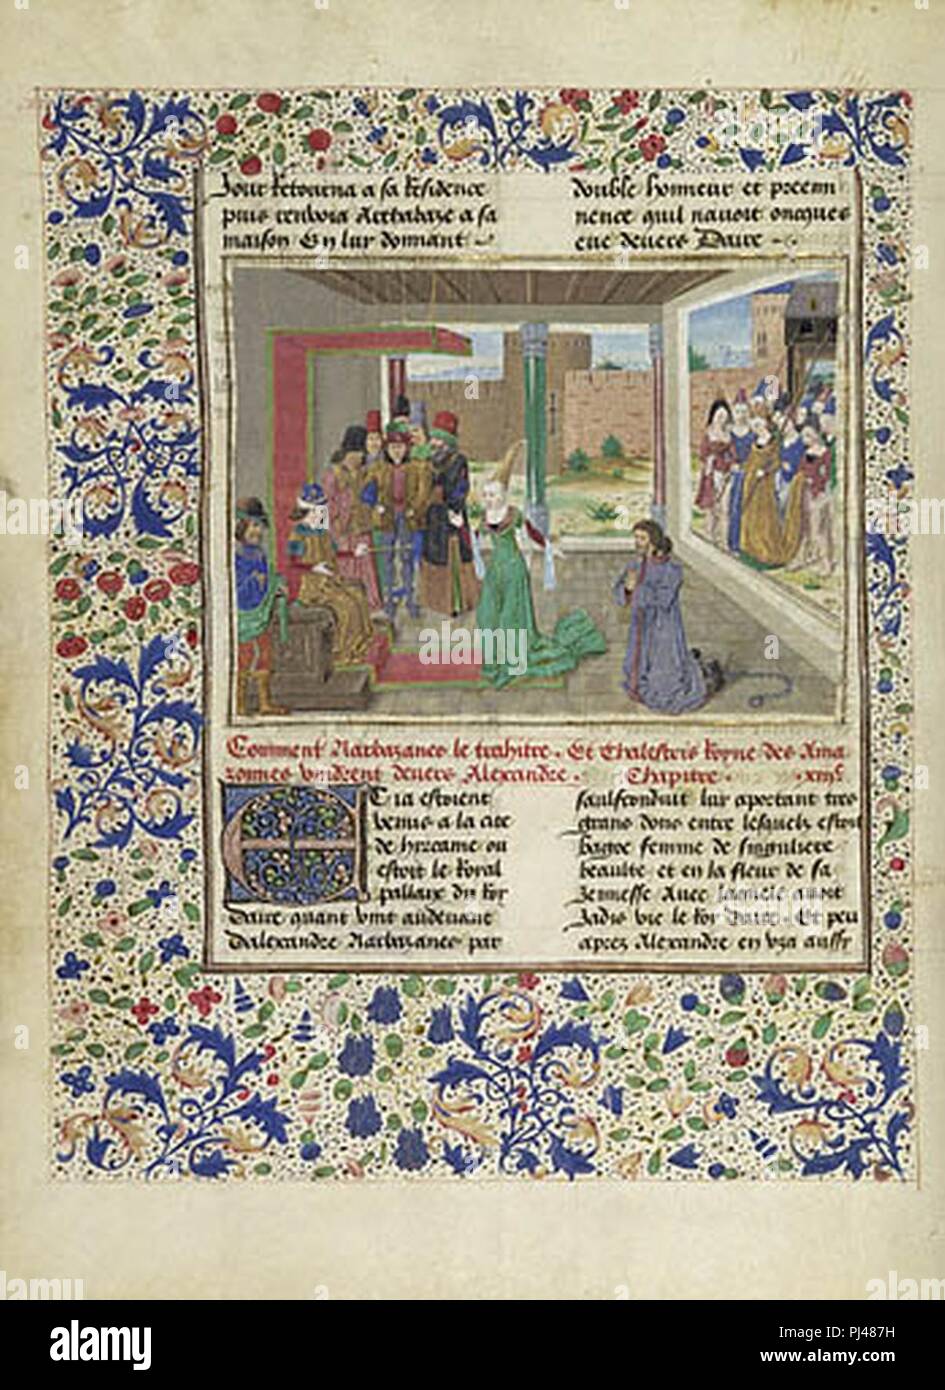 Jour Retourna a sa Residence
puis renvoia Arthabaze a sa
maison En lui donnant
double honneur et preemi
nence quil navoit oncques
eue devers Daire
Comment Narbazanes le trahitre. Et Thalestris Royne des Ama
zonnes vindrent devers Alexandre. Chapitre. xiiiie
Et ia estoient
venus a la cite
de hyrcame ou
estoit le Roial
pallaix du Roy
Daire quant vint audevant
Dalexandre Narbazanes par
saulfconduit lui aportant tres
grans dons entre lesquelz estoit
bagoe femme de singuliere
beaulte et en la fleur de sa
Jennesse Avec laquele avoit
Jadis vie le Roy Daire. Et peu
apres Alexandre en usa aussi
alamy
Image ID: PJ487H
www.alamy.com